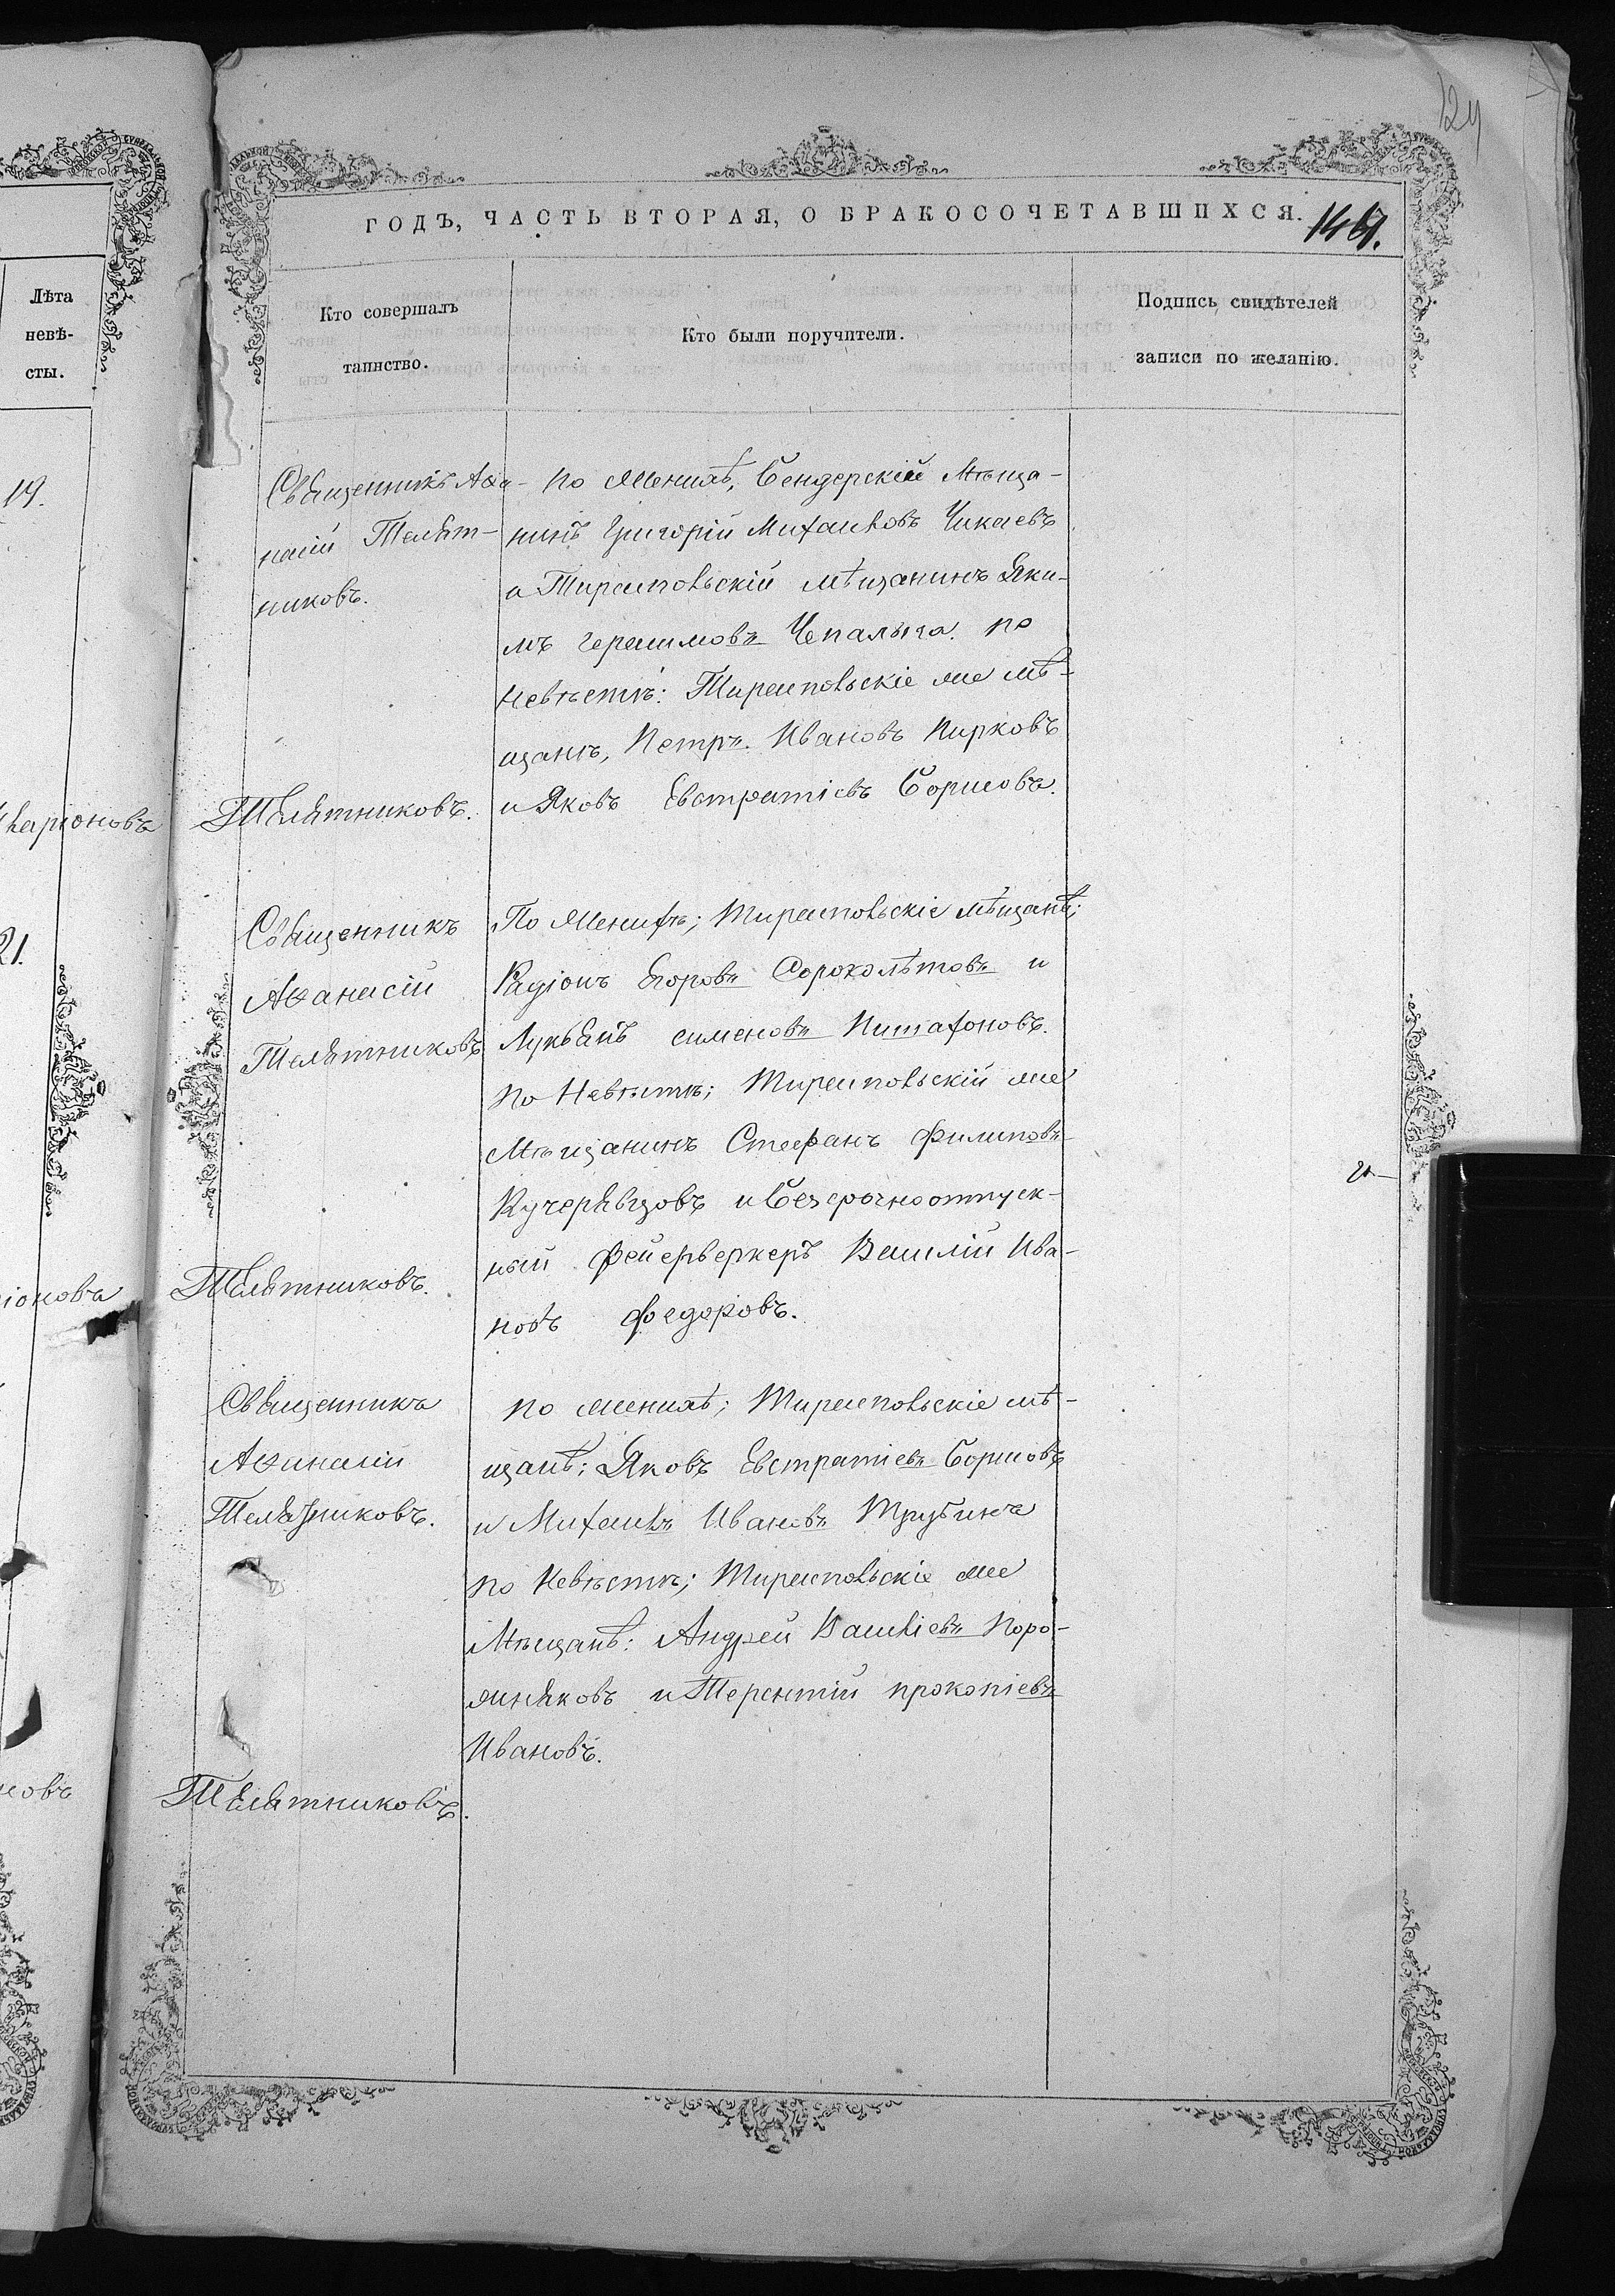 124
ГОДЪ, ЧАСТЬ ВТОРАЯ, О БРАКОСОЧЕТАВШИХСЯ.
Лѣта
невѣ-
сты.
Кто совершалъ
таинство.
Кто были поручители.
Подпись свидѣтелей
записи по желанію.
19.
Священникъ Аѳа-
насій Телят-
никовъ.
по Женихѣ, Бендерскій Мѣща-
нинъ Григорій Михаиловъ Чикаевъ
и Тираспольскій мѣщанинъ Яки-
мъ Герасимовъ Чепалыга. по
Невѣстѣ: Тираспольскіе же мѣ-
щанѣ, Петръ Ивановъ Кирковъ
и Яковъ Евстратіевъ Борисовъ.
Телятниковъ.
21.
Священникъ
Аѳанасій
Телятниковъ
По Женихѣ; Тираспольскіе мѣщанѣ;
Радіонъ Егоровъ Сороколѣтовъ и
Лукьянъ сименовъ Китафоновъ.
по Невѣстѣ; Тираспольскій же
Мѣщанинъ Стефанъ Филиповъ
Кучерявцовъ и Безсрочноотпуск-
ный Фейерверкеръ Василій Ива-
новъ Федоровъ.
Телятниковъ.
Священникъ
Аѳанасій
Телятниковъ.
по женихѣ; Тираспольскіе мѣ-
щанѣ; Яковъ Евстратіевъ Борисовъ
и Михаилъ Ивановъ Трубинъ
по Невѣстѣ; Тираспольскіе же
Мѣщанѣ: Андрей Василіевъ Коро-
жняковъ и Терентій прокопіевъ
Ивановъ.
Телятниковъ.